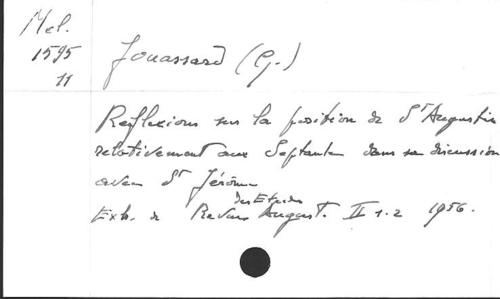 Mel.
1595
11
Jouassard (G.)
Réflexions sur la position de St Augustin
relativement aux Septante dans sa discussion
avec St Jérôme
des Etudes
Extr. de Revue August. II 1.2 1956.